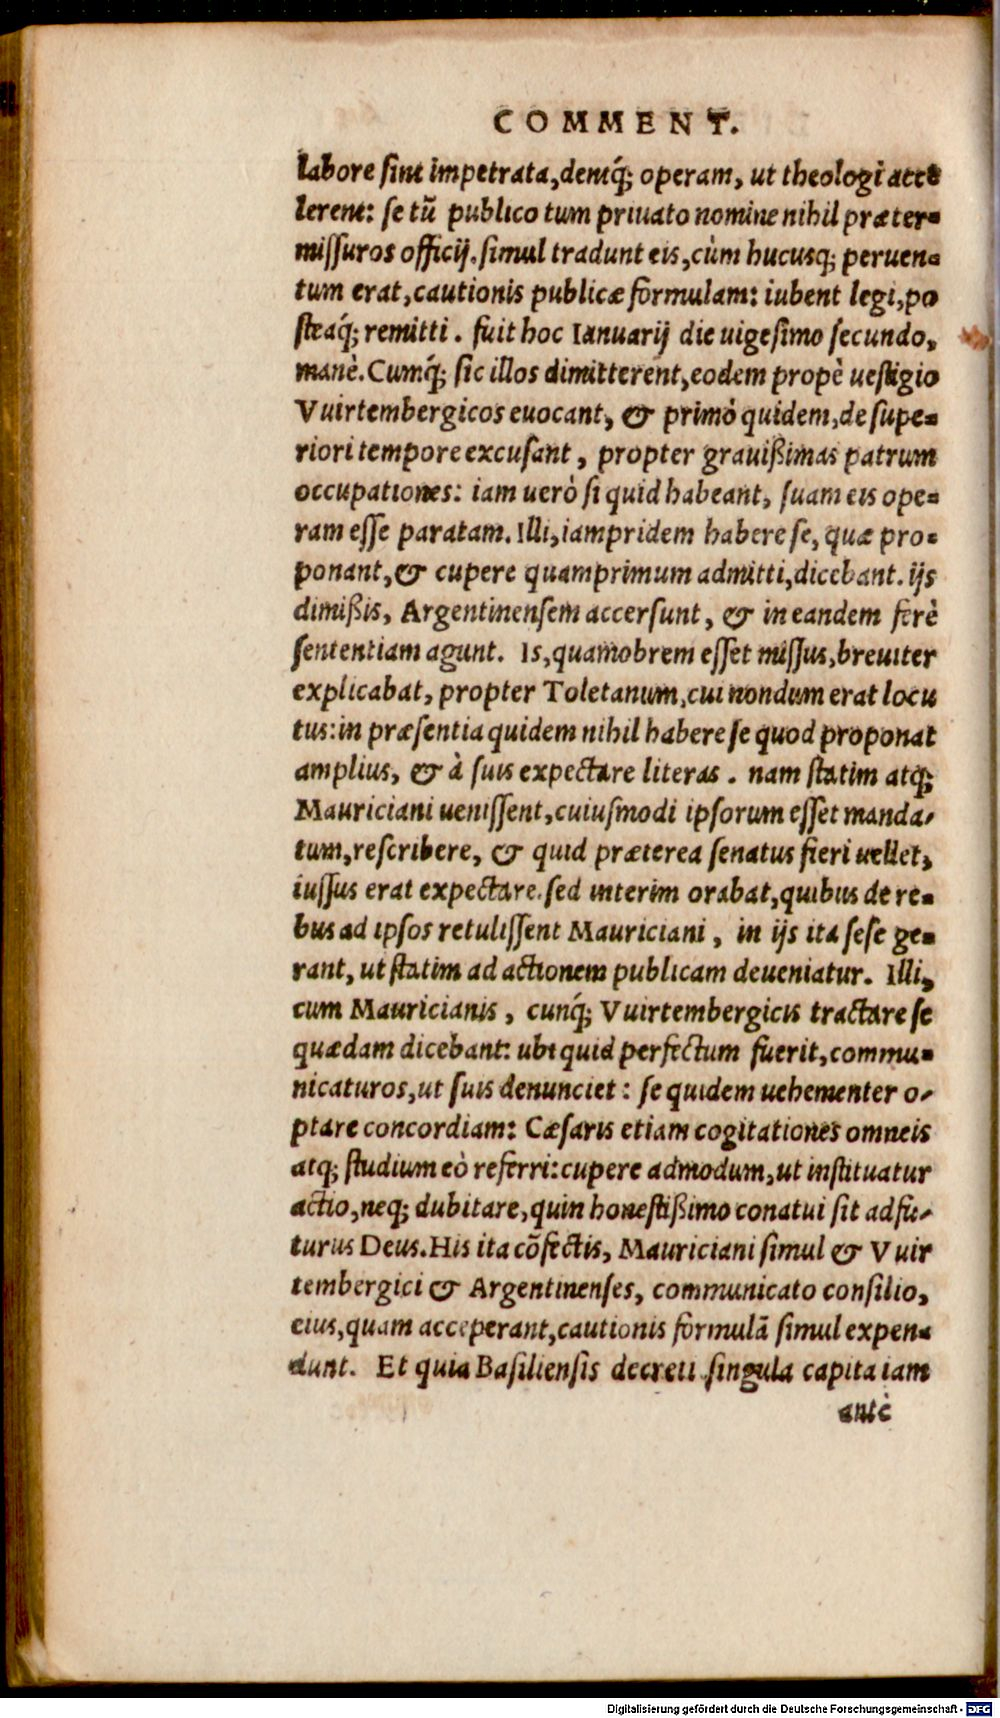 COMMENT.
labore sint impetrata, dentq́; operam, ut theologi acce
lerent: se tū publico tum priuato nomine nihil præter-
missuros officij. simul tradunt eis, cùm hucusq; peruen-
tum erat, cautionis publicæ formulam: iubent legi, po
steaq́; remitti. fuit hoc Ianuarij die uigesimo secundo,
manè. Cumq́; sic illos dimitterent, eodem propè uestigio
Vuirtembergicos euocant, & primò quidem, de supe-
riori tempore excusant, propter grauißimas patrum
occupationes: iam uerò si quid habeant, suam eis ope-
ram esse paratam. Illi, iampridem habere se, quæ pro-
ponant, & cupere quamprimum admitti, dicebant. ijs
dimißis, Argentinensem accersunt, & in eandem ferè
sententiam agunt. Is, quamobrem esset missus, breuiter
explicabat, propter Toletanum, cui nondum erat locu
tus: in præsentia quidem nihil habere se quod proponat
amplius, & à suis expectare literas. nam statim atq;
Mauriciani uenissent, cuiusmodi ipsorum esset manda-
tum, rescribere, & quid præterea senatus fieri uellet,
iussus erat expectare. sed interim orabat, quibus de re-
bus ad ipsos retulissent Mauriciani, in ijs ita sese ge-
rant, ut statim ad actionem publicam deueniatur. Illi,
cum Mauricianis, cunq́; Vuirtembergicis tractare se
quædam dicebant: ubi quid perfectum fuerit, commu-
nicaturos, ut suis denunciet: se quidem uehementer o-
ptare concordiam: Cæsaris etiam cogitationes omneis
atq; studium eò referri: cupere admodum, ut instituatur
actio, neq; dubitare, quin honestißimo conatui sit adfu-
turus Deus. His ita cōfectis, Mauriciani simul & Vuir
tembergici & Argentinenses, communicato consilio,
eius, quam acceperant, cautionis formulā simul expen-
dunt. Et quia Basiliensis decreti singula capita iam
antè
Digitalisierung gefördert durch die Deutsche Forschungsgemeinschaft - DFG